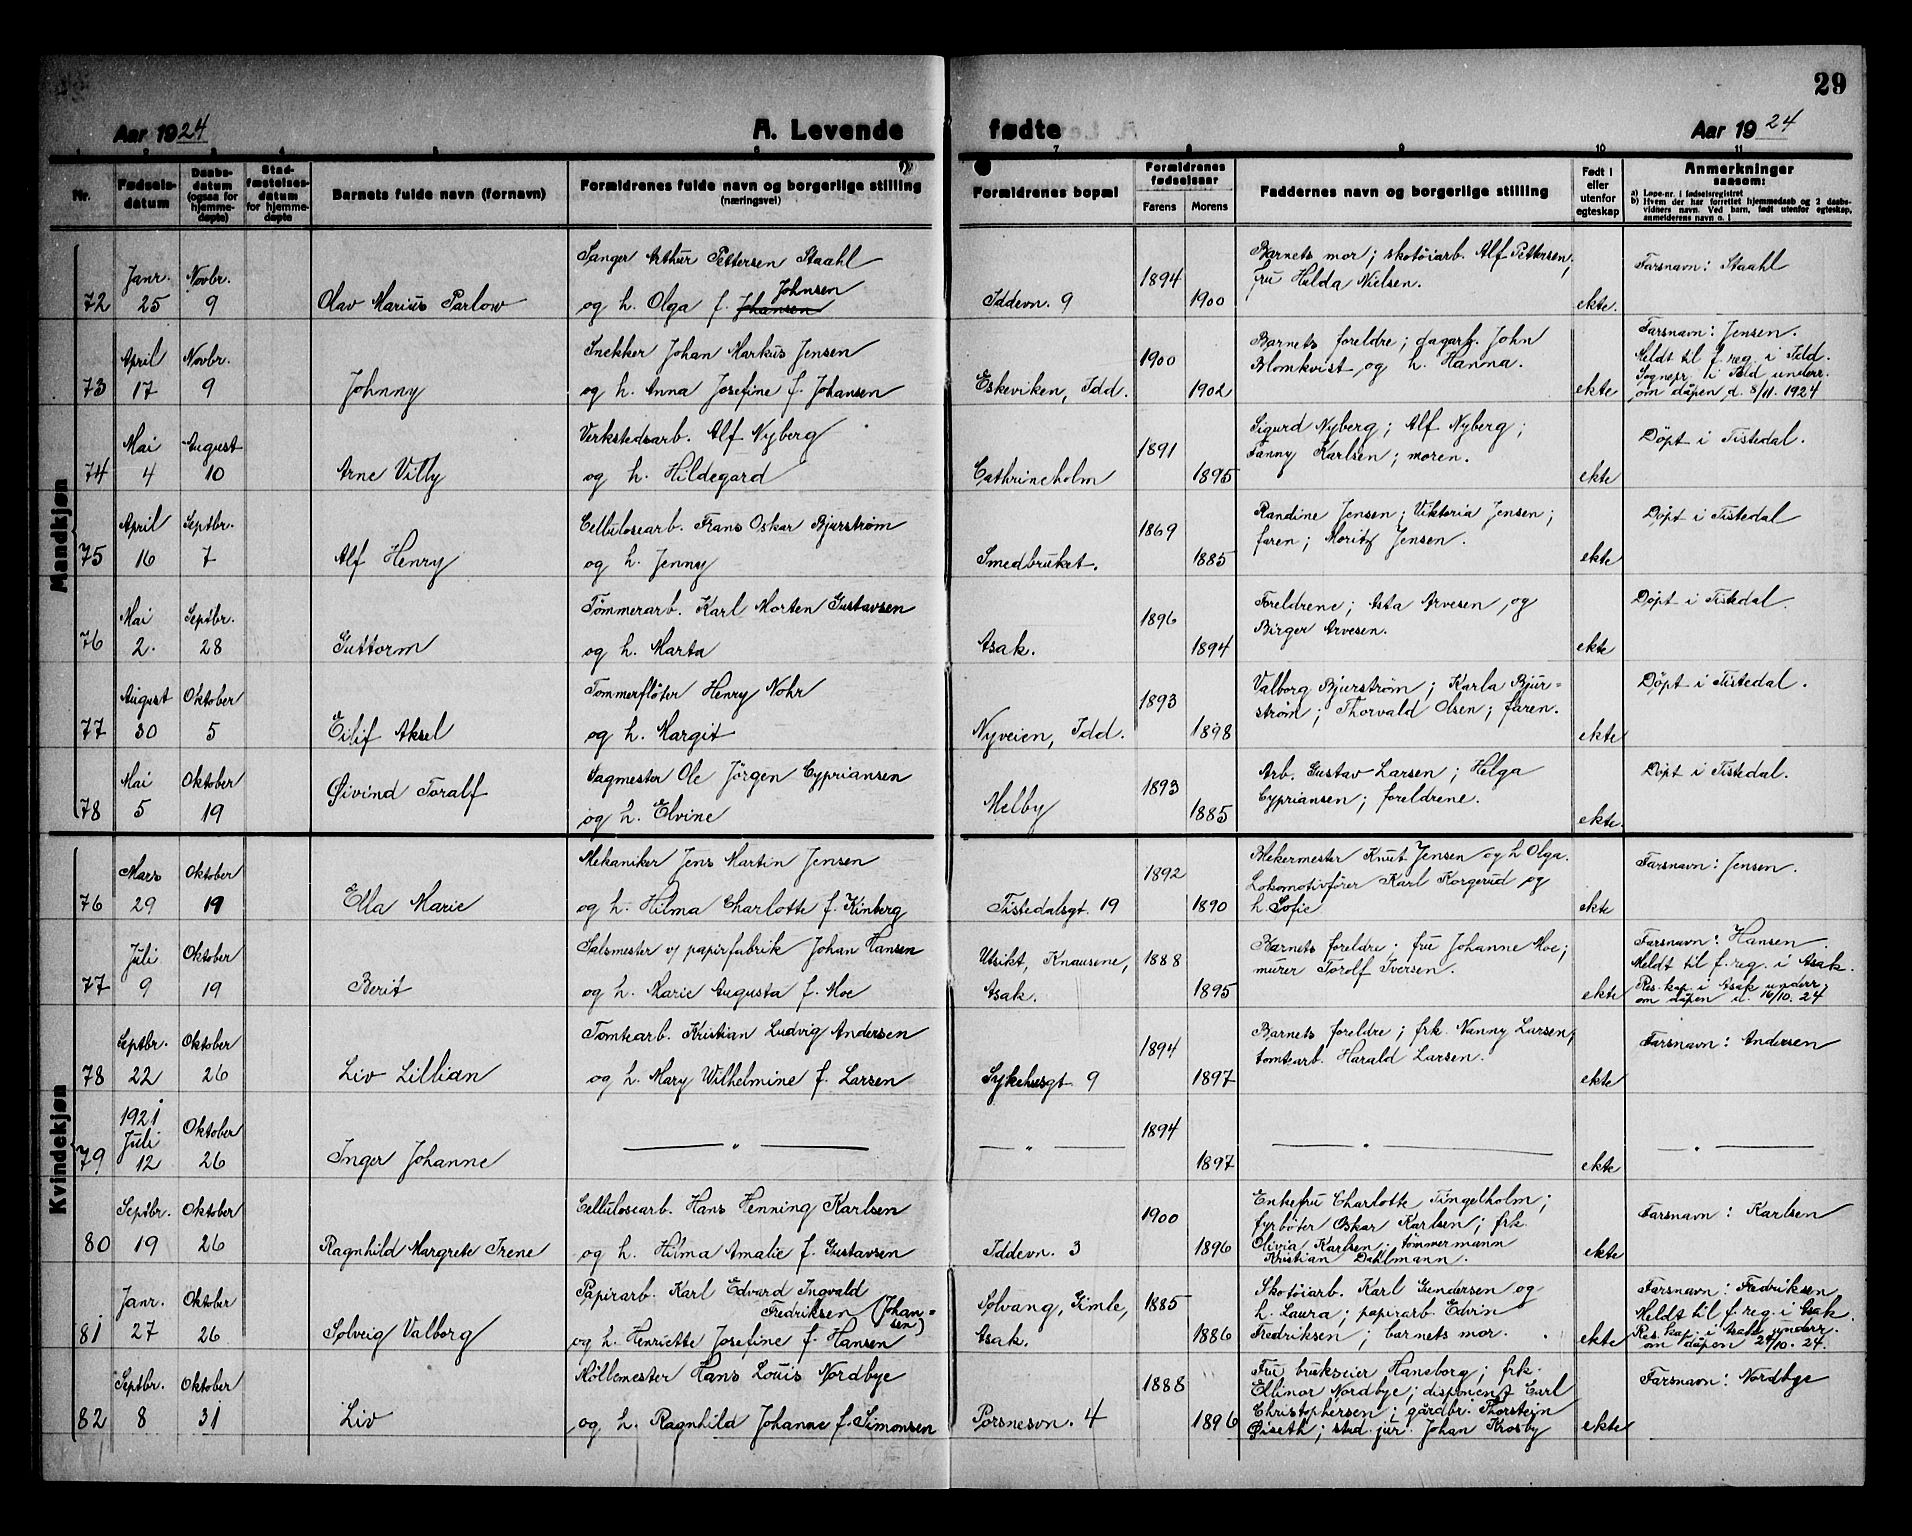 29
Aar 1924
A. Levende
fødte
Aar 1924
1 2 3 4 5 6 7 8 9 10 11
Nr.
Fødsels-
datum
Daabs-
datum
(ogsaa for
hjemme-
døpte)
Stad-
fæstelses-
datum
for hjemme-
døpte
Barnets fulde navn (fornavn)
Forældrenes fulde navn og borgerlige stilling
(næringsvei)
Forældrenes bopæl
Forældrenes
fødselsaar
Farens
Morens
Faddernes navn og borgerlige stilling
Født i
eller
utenfor
egteskap
Anmerkninger
saasom:
a) Løpe-nr. i fødselsregistret
b) Hvem der har forrettet hjemmedaab og 2 daabs-
vidners navn. Ved barn, født utenfor egteskap,
anmelderens navn o. l.
Mandkjøn
72
Janr.
25
Novbr.
9
Olav Marius Parlow
Sanger Arthur Pettersen Staahl
Johnsen
og h. Olga f. Johansen
Iddevn. 9
1894
1900
Barnets mor; skotöiarb. Alf Pettersen,
fru Hilda Nielsen.
ekte.
Farsnavn: Staahl
73
April
17
Novbr.
9
Johnny
Snekker Johan Markus Jensen
og h. Anna Josefine f. Johansen
Eskeviken, Idd.
1900
1902
Barnets foreldre; dagarb. John
Blomkvist, og h. Hanna.
ekte
Farsnavn: Jensen.
Meldt til f. reg. i Idd.
Sognepr. i Idd underr.
om dåpen d. 8/11. 1924
74
Mai
4
August
10
Arne Villy
Verkstedsarb. Alf Nyberg
og h. Hildegard
Cathrineholm
1891
1895
Sigurd Nyberg; Alf Nyberg;
Fanny Karlsen; moren.
ekte
Döpt i Tistedal.
75
April
16
Septbr.
7
Alf Henry
Cellulosearb. Frans Oskar Bjurstrøm
og h. Jenny
Smedbruket.
1869
1885
Randine Jensen; Viktoria Jensen;
faren; Moritz Jensen.
ekte
Döpt i Tistedal
76
Mai
2.
Septbr.
28
Guttorm
Tømmerarb. Karl Morten Gustavsen
og h. Marta
Asak.
1896
1894
Foreldrene; Asta Arvesen, og
Birger Arvesen.
ekte
Döpt i Tistedal.
77
August
30
Oktober
5
Eilif Aksel
Tømmerflöter Henry Nohr
og h. Margit
Nyveien, Idd.
1893
1898
Valborg Bjurstrøm; Karla Bjur=
strøm; Thorvald Olsen; faren.
ekte
Döpt i Tistedal.
78
Mai
5
Oktober
19
Øivind Toralf
Sagmester Ole Jörgen Cypriansen
og h. Elvine
Melby
1893
1885
Arb. Gustav Larsen; Helga
Cypriansen; foreldrene.
ekte.
Döpt i Tistedal.
Kvindekjøn
76
Mars
29
Oktober
19
Ella Marie
Mekaniker Jens Martin Jensen
og h. Hilma Charlotte f. Kinberg
Tistedalsgt. 19
1892
1890
Blekermester Knut Jensen og h Olga.
Lokomotivfører Karl Korgerud og
h. Sofie
ekte
Farsnavn: Jensen.
77
Juli
9
Oktober
19
Berit
Salsmester v/ papirfabrik Johan Hansen
og h. Marie Augusta f. Moe
Utsikt, Knausene,
Asak.
1888
1895
Barnets foreldre; fru Johanne Moe;
murer Torolf Iversen.
ekte
Farsnavn: Hansen
Meldt til f. reg. i Asak.
Res. kap i Asak underr.
om dåpen d. 16/10. 24
78
Septbr.
22
Oktober
26
Liv Lillian
Tomtearb. Kristian Ludvig Andersen
og h. Mary Wilhelmine f. Larsen
Sykehusgt. 9
1894
1897
Barnets foreldre; frk. Nanny Larsen,
tomtearb. Harald Larsen.
ekte
Farsnavn: Andersen
79
1921
Juli
12
Oktober
26
Inger Johanne
— " —
— " —
1894
1897
— " —
ekte
— " —
80
Septbr.
19
Oktober
26
Ragnhild Margrete Irene
Cellulosearb. Hans Henning Karlsen
og h. Hilma Amalie f. Gustavsen
Iddevn. 3
1900
1896
Enkefru Charlotte Tingelholm;
fyrböter Oskar Karlsen; frk.
Olivia Karlsen; tömmermann
Kristian Dahlmann.
ekte
Farsnavn: Karlsen
81
Janr.
27
Oktober
26
Solveig Valborg
Papirarb. Karl Edvard Ingvald
Fredriksen (Johan=
sen)
og h. Henriette Josefine f. Hansen
Solvang, Gimle,
Asak.
1885
1886
Skotöiarb. Karl Gundersen og
h. Laura; papirarb. Edvin
Fredriksen; barnets mor.
ekte
Farsnavn: Fredriksen
Meldt til f. reg. i Asak.
Res. kap. i Asak underr.
om dåpen 24/10. 24.
82
Septbr.
8
Oktober
31
Liv
Möllemester Hans Louis Nordbye
og h. Ragnhild Johanne f. Simonsen
Porsnesvn. 4
1888
1896
Fru brukseier Haneborg; frk.
Ellinor Nordbye; disponent Carl
Christophersen; gårdbr. Thorstein
Øiseth; stud. jur. Johan Krosby
ekte
Farsnavn: Nordbye